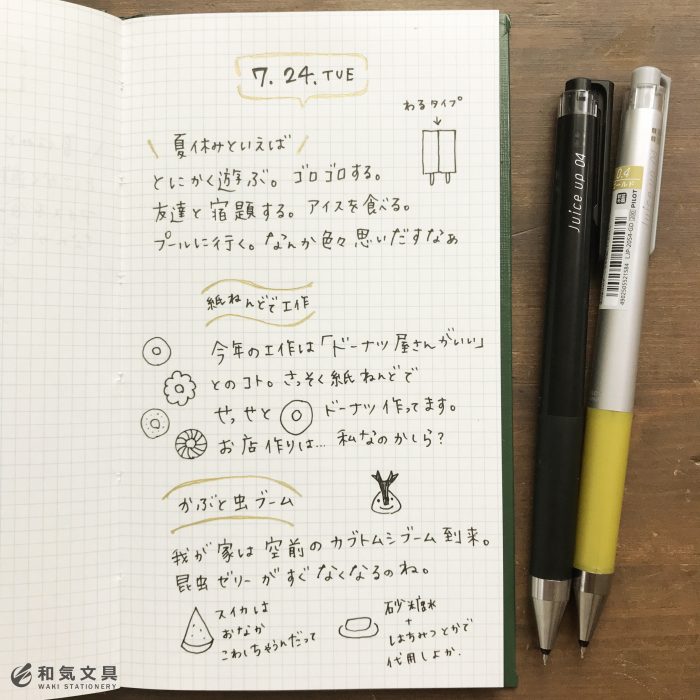 7. 24. TUE
わるタイプ
夏休みといえば
とにかく遊ぶ。ゴロゴロする。
友達と宿題する。アイスを食べる。
プールに行く。なんか色々思いだすなぁ
紙ねんどで工作
今年の工作は「ドーナツ屋さんがいい」
とのコト。さっそく紙ねんどで
せっせと ドーナツ作ってます。
お店作りは… 私なのかしら?
かぶと虫ブーム
我が家は空前のカブトムシブーム到来。
昆虫ゼリーがすぐなくなるのね。
スイカは
おなか
こわしちゃうんだって
砂糖水
+
はちみつとかで
代用しよか.
和気文具
WAKI STATIONERY
Juice up 04
0.4
ゴールド
PILOT
LJP-20S4-GD
4902505521584